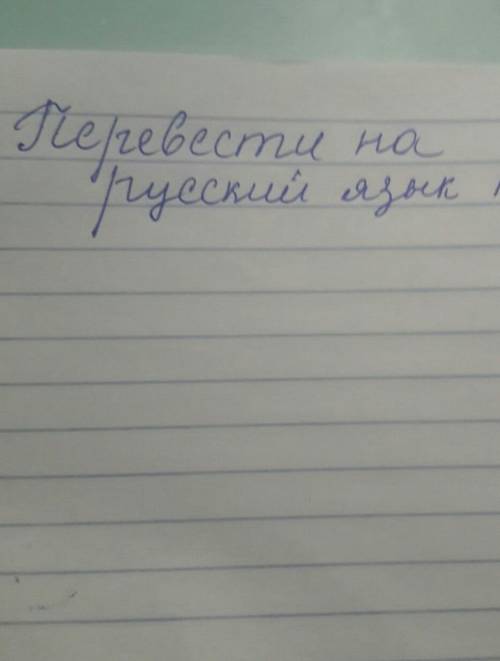 Перевести на
русский язык